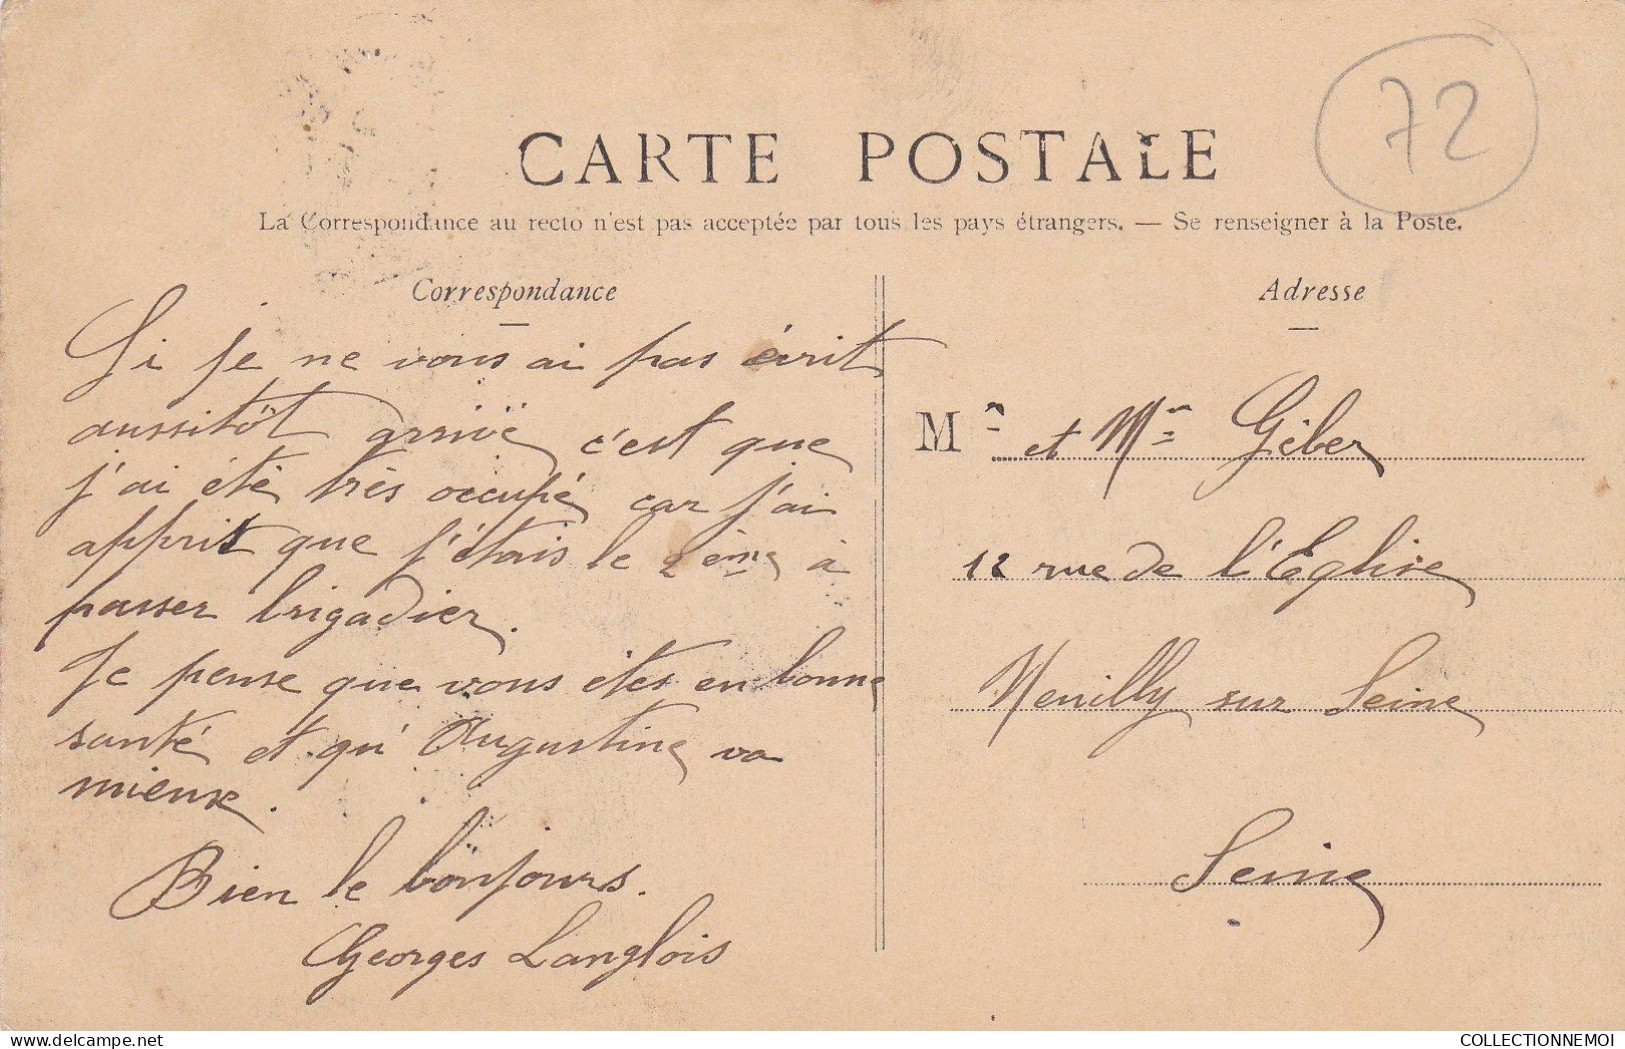 72
CARTE POSTALE
La Correspondance au recto n'est pas acceptée par tous les pays étrangers. — Se renseigner à la Poste.
Correspondance
Si je ne vous ai pas écrit
aussitôt arrivé c'est que
j'ai été très occupé car j'ai
apprit que j'étais le 2ème à
passer brigadier.
Je pense que vous êtes en bonne
santé et qu'Augustine va
mieux.
Bien le bonjours.
Georges Langlois
Adresse
Mr et Mme Géber
12 rue de l'Eglise
Neuilly sur Seine
Seine
COLLECTIONNEMOI
delcampe.net